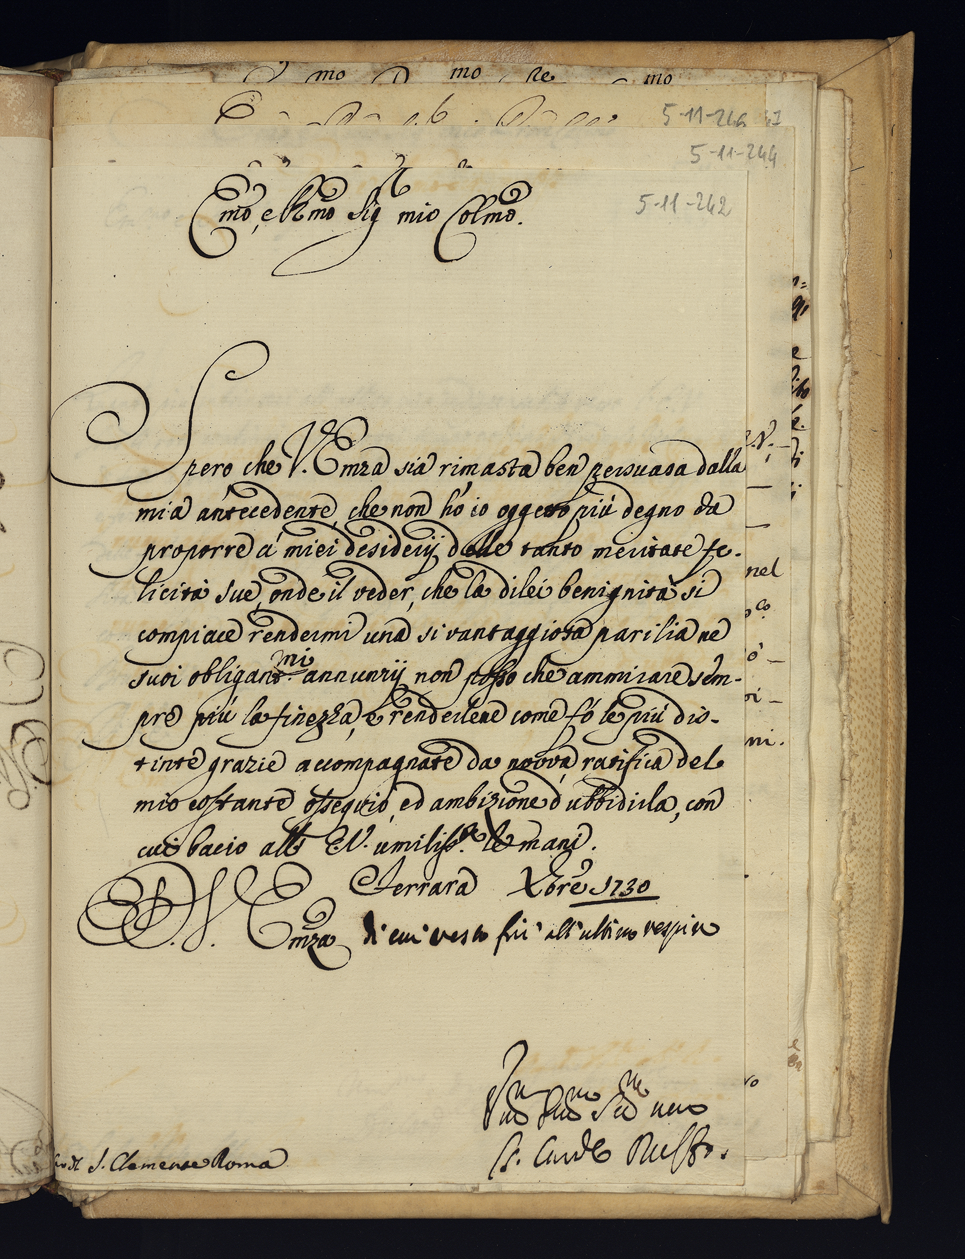 5-11-246
5-11-244
5-11-242
Emo, e Rmo Sig mio Colmo.
Spero che V. Emza sia rimasta ben persuasa dalla
mia antecedente, che non hò io oggetto più degno da
proporre a' miei desiderij delle tanto meritate fe-
licità sue, onde il veder, che la dilei benignità si
compiace rendermi una si vantaggiosa parilia ne
suoi obligant.mi annunzij non posso che ammirare sem-
pre più la finezza, e renderlene come fò le più dis-
tinte grazie accompagnate da nuova ratifica del
mio costante ossequio, ed ambizione d'ubbidirla, con
cui bacio all' E.V. umiliss.e le mani.
Ferrara Xbre 1730
D. V. Emza di cui resto fin' all' ultimo respiro
S. Clemente Roma
Vmo Dmo Ser vero
Card Ruffo.